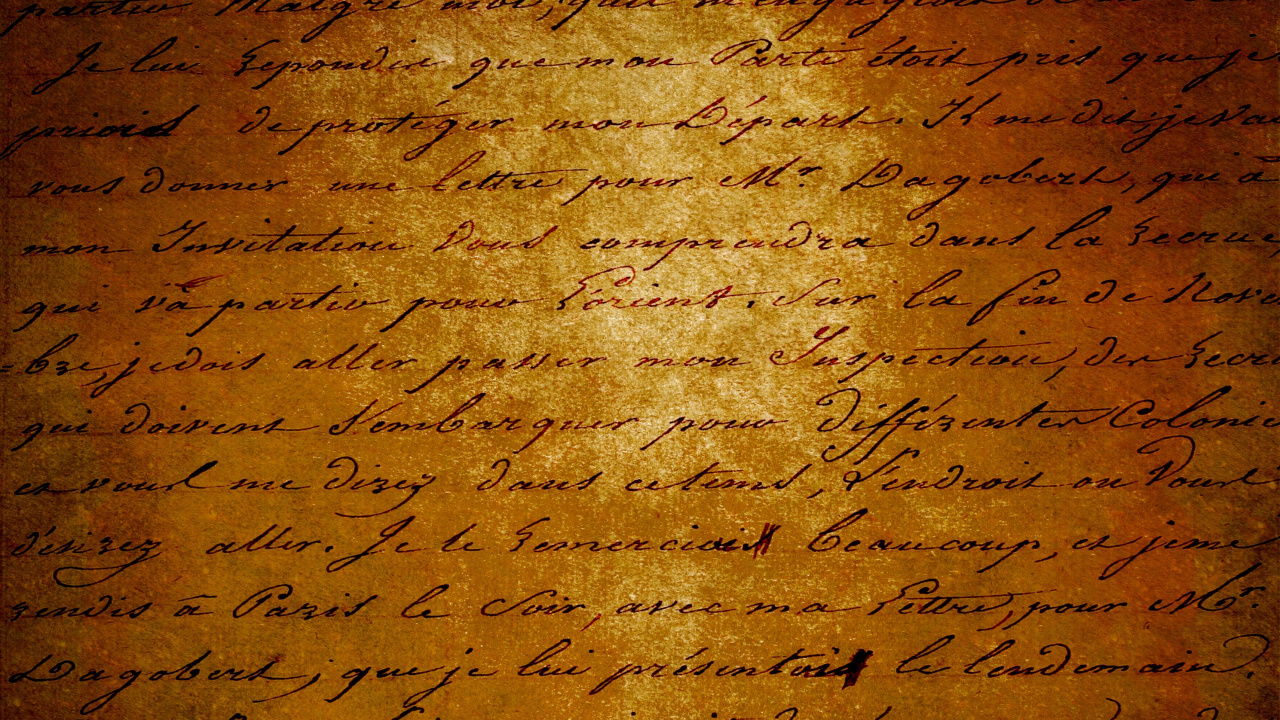 partir Malgré moi,
Je lui Repondis que mon Parti étoit pris que je
priois de protéger mon Départ. Il me dit, je va
vous donner une lettre pour Mr. Dagobert, qui à
mon Invitation Vous comprendra dans la Recrue,
qui va partir pour L'orient. Sur la fin de Nove
=bre, je dois aller passer mon Inspection, des Recr
qui doivent S'embarquer pour différentes Colonie
et vous me direz dans ce tems, L'endroit ou Vous
désirez aller. Je le Remerciois beaucoup, et je me
rendis à Paris le Soir, avec ma Lettre, pour Mr.
Dagobert, que je lui présentois le lendemain.